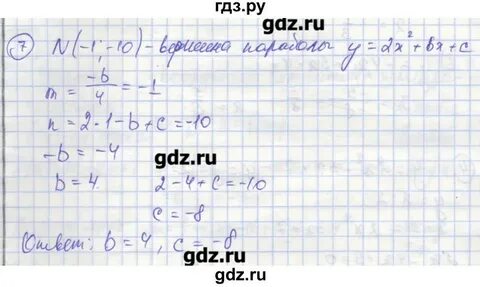 гдз.ру
7 N(-1; -10) - вершина параболы y = 2x² + bx + c
gdz.ru
m = -b/4 = -1
n = 2·1 - b + c = -10
-b = -4
gdz.ru
b = 4 2 - 4 + c = -10
c = -8
gdz.ru
Ответ: b = 4, c = -8
gdz.ru